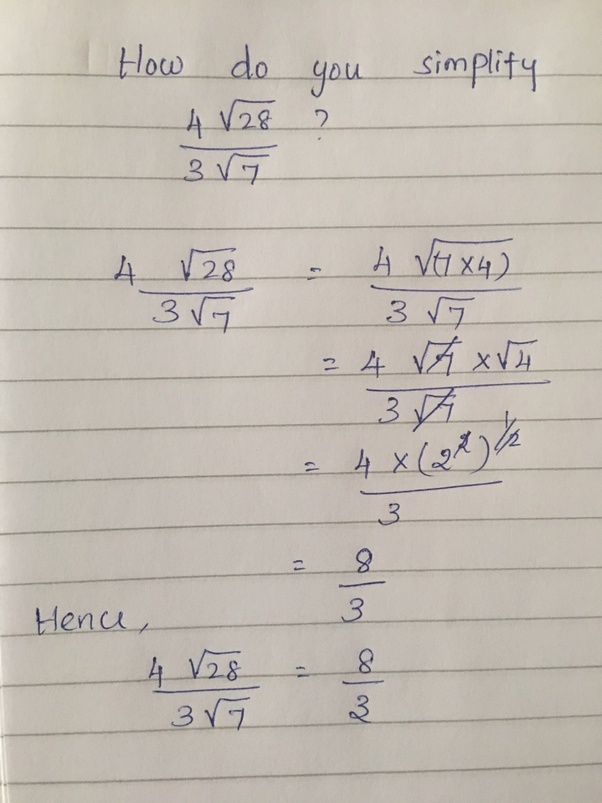 How do you simplify
4 √28 / 3 √7 ?
4 √28 / 3 √7 = 4 √(7×4) / 3 √7
= 4 √7 × √4 / 3 √7
= 4 × (2^2)^1/2 / 3
= 8 / 3
Hence,
4 √28 / 3 √7 = 8 / 3